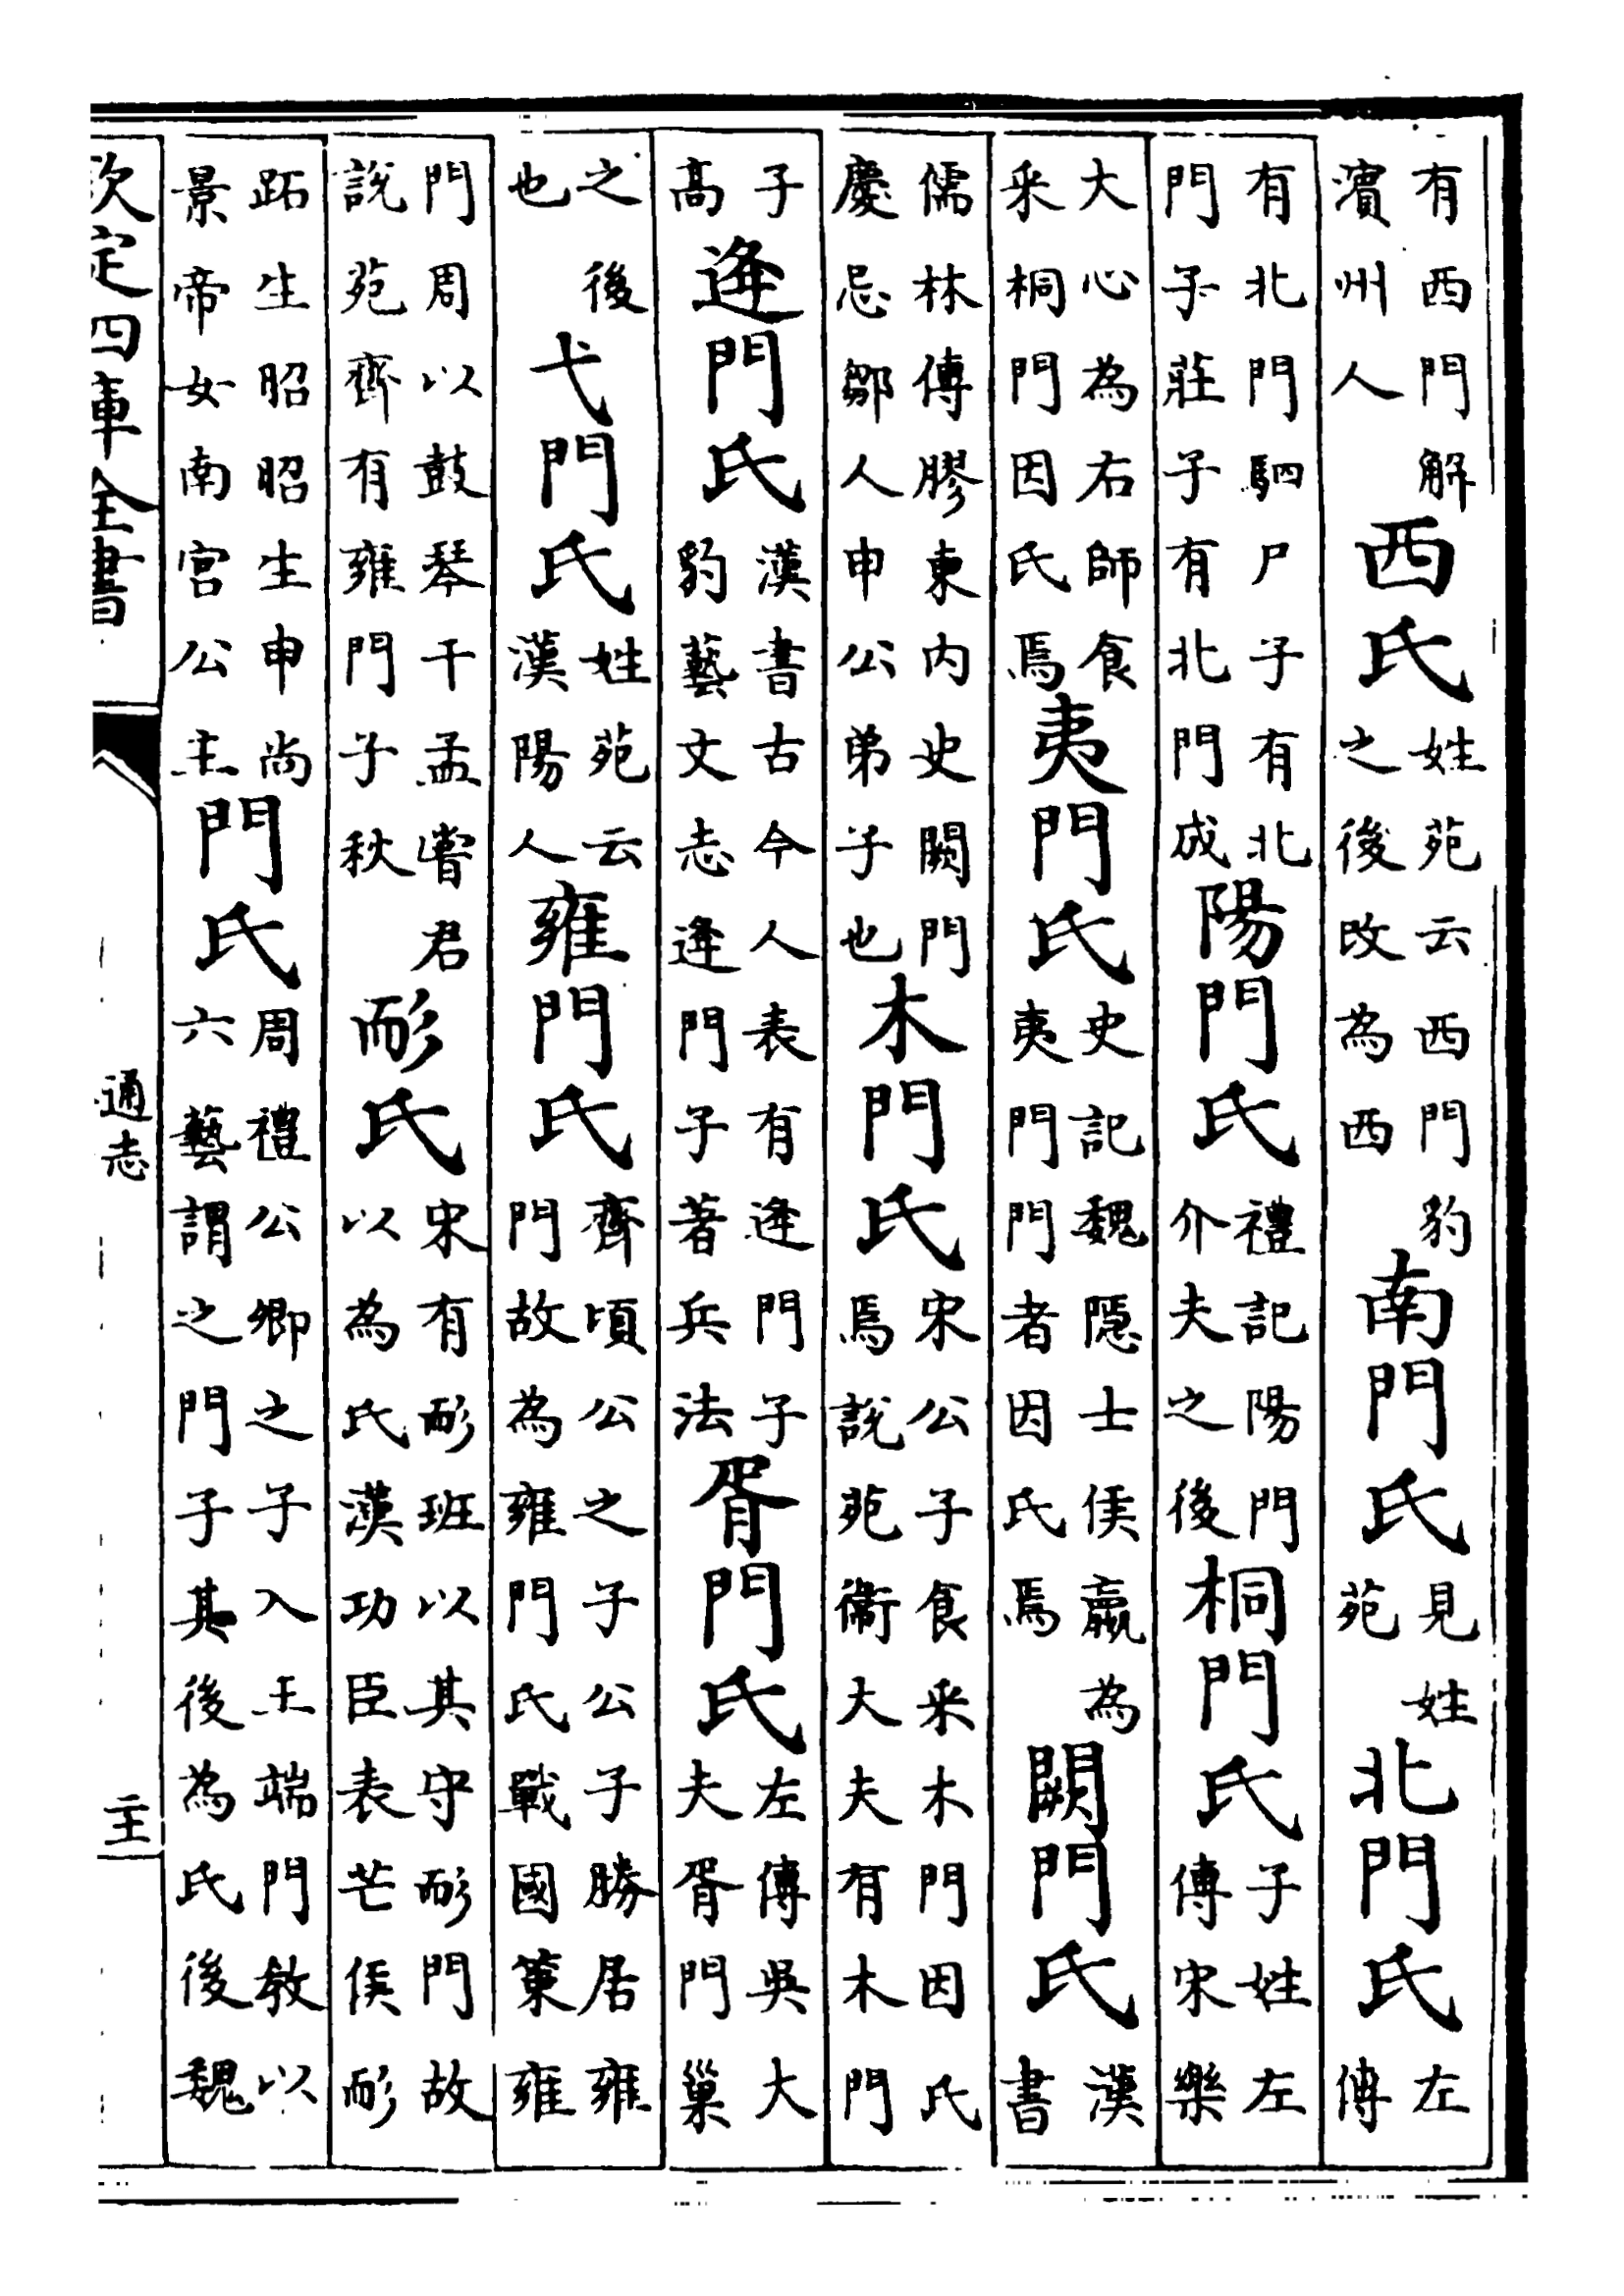 有西門解濱州人西氏姓苑云西門豹之後改為西南門氏見姓苑北門氏左傳
有北門駟尸子有北門子莊子有北門成陽門氏禮記陽門介夫之後桐門氏子姓左傳宋樂
大心為右師食采桐門因氏焉夷門氏史記魏隱士侯嬴為夷門門者因氏焉闕門氏漢書
儒林傳膠東内史闕門慶忌鄒人申公弟子也木門氏宋公子食采木門因氏焉說苑衞大夫有木門
子高逄門氏漢書古今人表有逄門子豹藝文志逄門子著兵法胥門氏左傳吳大夫胥門巢
之後也弋門氏姓苑云漢陽人雍門氏齊頃公之子公子勝居雍門故為雍門氏戰國策雍
門周以鼓琴干孟嘗君說苑齊有雍門子秋耏氏宋有耏班以其守耏門故以為氏漢功臣表芒侯耏
跖生昭昭生申尚景帝女南宫公主門氏周禮公卿之子入王端門教以六藝謂之門子其後為氏後魏
欽定四庫全書
通志
主